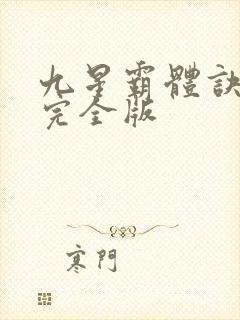 九星霸體訣
完全版
寒門